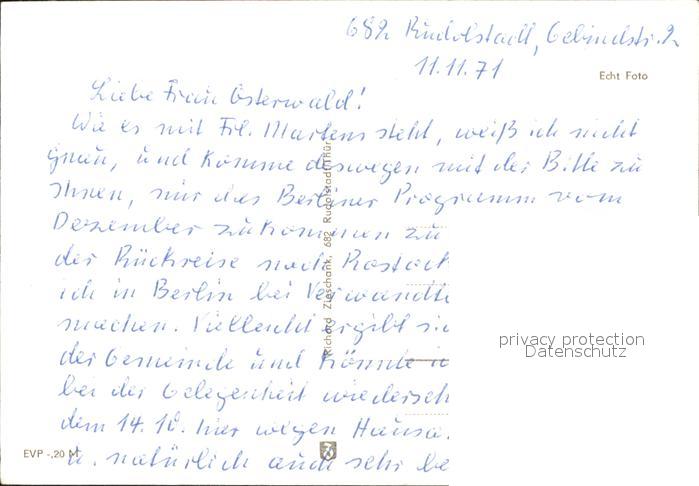 682 Rudolstadt,
11.11.71
Echt Foto
Liebe Frau Osterwald!
Wie es mit Frl. Martens steht, weiß ich nicht
genau, und komme deswegen mit der Bitte zu
Ihnen, mir das Berliner Programm vom
Dezember zukommen zu
der Rückreise nach Rostock
ich in Berlin bei Verwandte
machen. Vielleicht ergibt sic
der Gemeinde und könnte
bei der Gelegenheit wiederseh
dem 14. hier wegen Hausa
u. natürlich auch sehr be
Richard Zieschank, 682 Rudolstadt/Thür
privacy protection
Datenschutz
EVP -,20 M